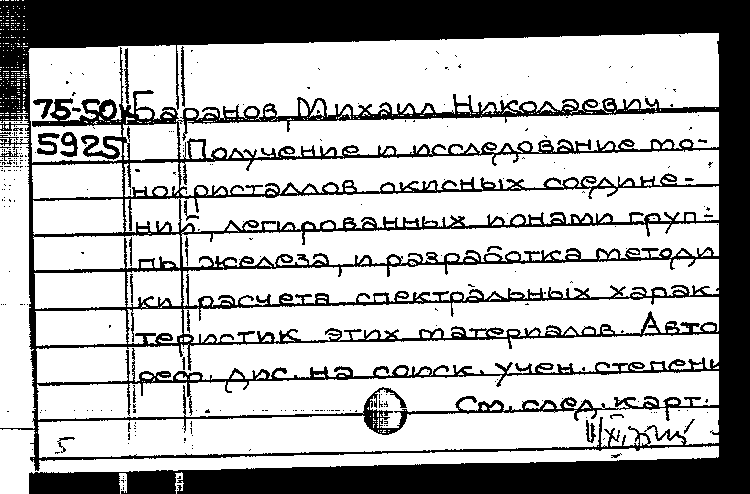 75-50к Баранов, Михаил Николаевич.
5925 Получение и исследование мо-
нокристаллов окисных соедине-
ний, легированных ионами груп-
пы железа, и разработка методи
ки расчета спектральных харак-
теристик этих материалов. Авто
реф. дис. на соиск. учен. степени
См. след. карт.
5